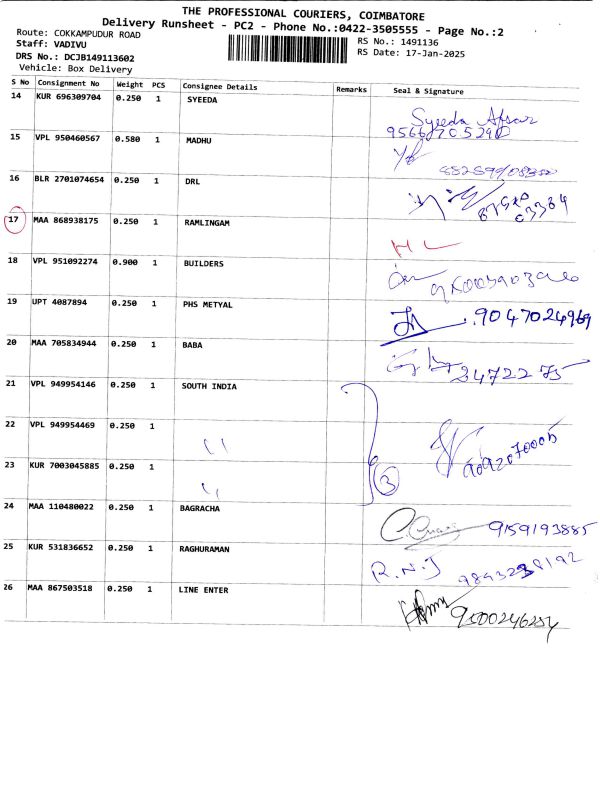 THE PROFESSIONAL COURIERS, COIMBATORE
Delivery Runsheet - PC2 - Phone No.:0422-3505555 - Page No.:2
Route: COKKAMPUDUR ROAD
RS No.: 1491136
Staff: VADIVU
RS Date: 17-Jan-2025
DRS No.: DCJB149113602
Vehicle: Box Delivery
S No Consignment No Weight PCS Consignee Details Remarks Seal & Signature
14 KUR 696309704 0.250 1 SYEEDA Syeeda Afsar
15 VPL 950460567 0.580 1 MADHU
16 BLR 2701074654 0.250 1 DRL
17 MAA 868938175 0.250 1 RAMLINGAM
18 VPL 951092274 0.900 1 BUILDERS
19 UPT 4087894 0.250 1 PHS METYAL 9047024969
20 MAA 705834944 0.250 1 BABA
21 VPL 949954146 0.250 1 SOUTH INDIA
22 VPL 949954469 0.250 1 ""
23 KUR 7003045885 0.250 1 "" 3
24 MAA 110480022 0.250 1 BAGRACHA 9159193885
25 KUR 531836652 0.250 1 RAGHURAMAN R.N.J
26 MAA 867503518 0.250 1 LINE ENTER